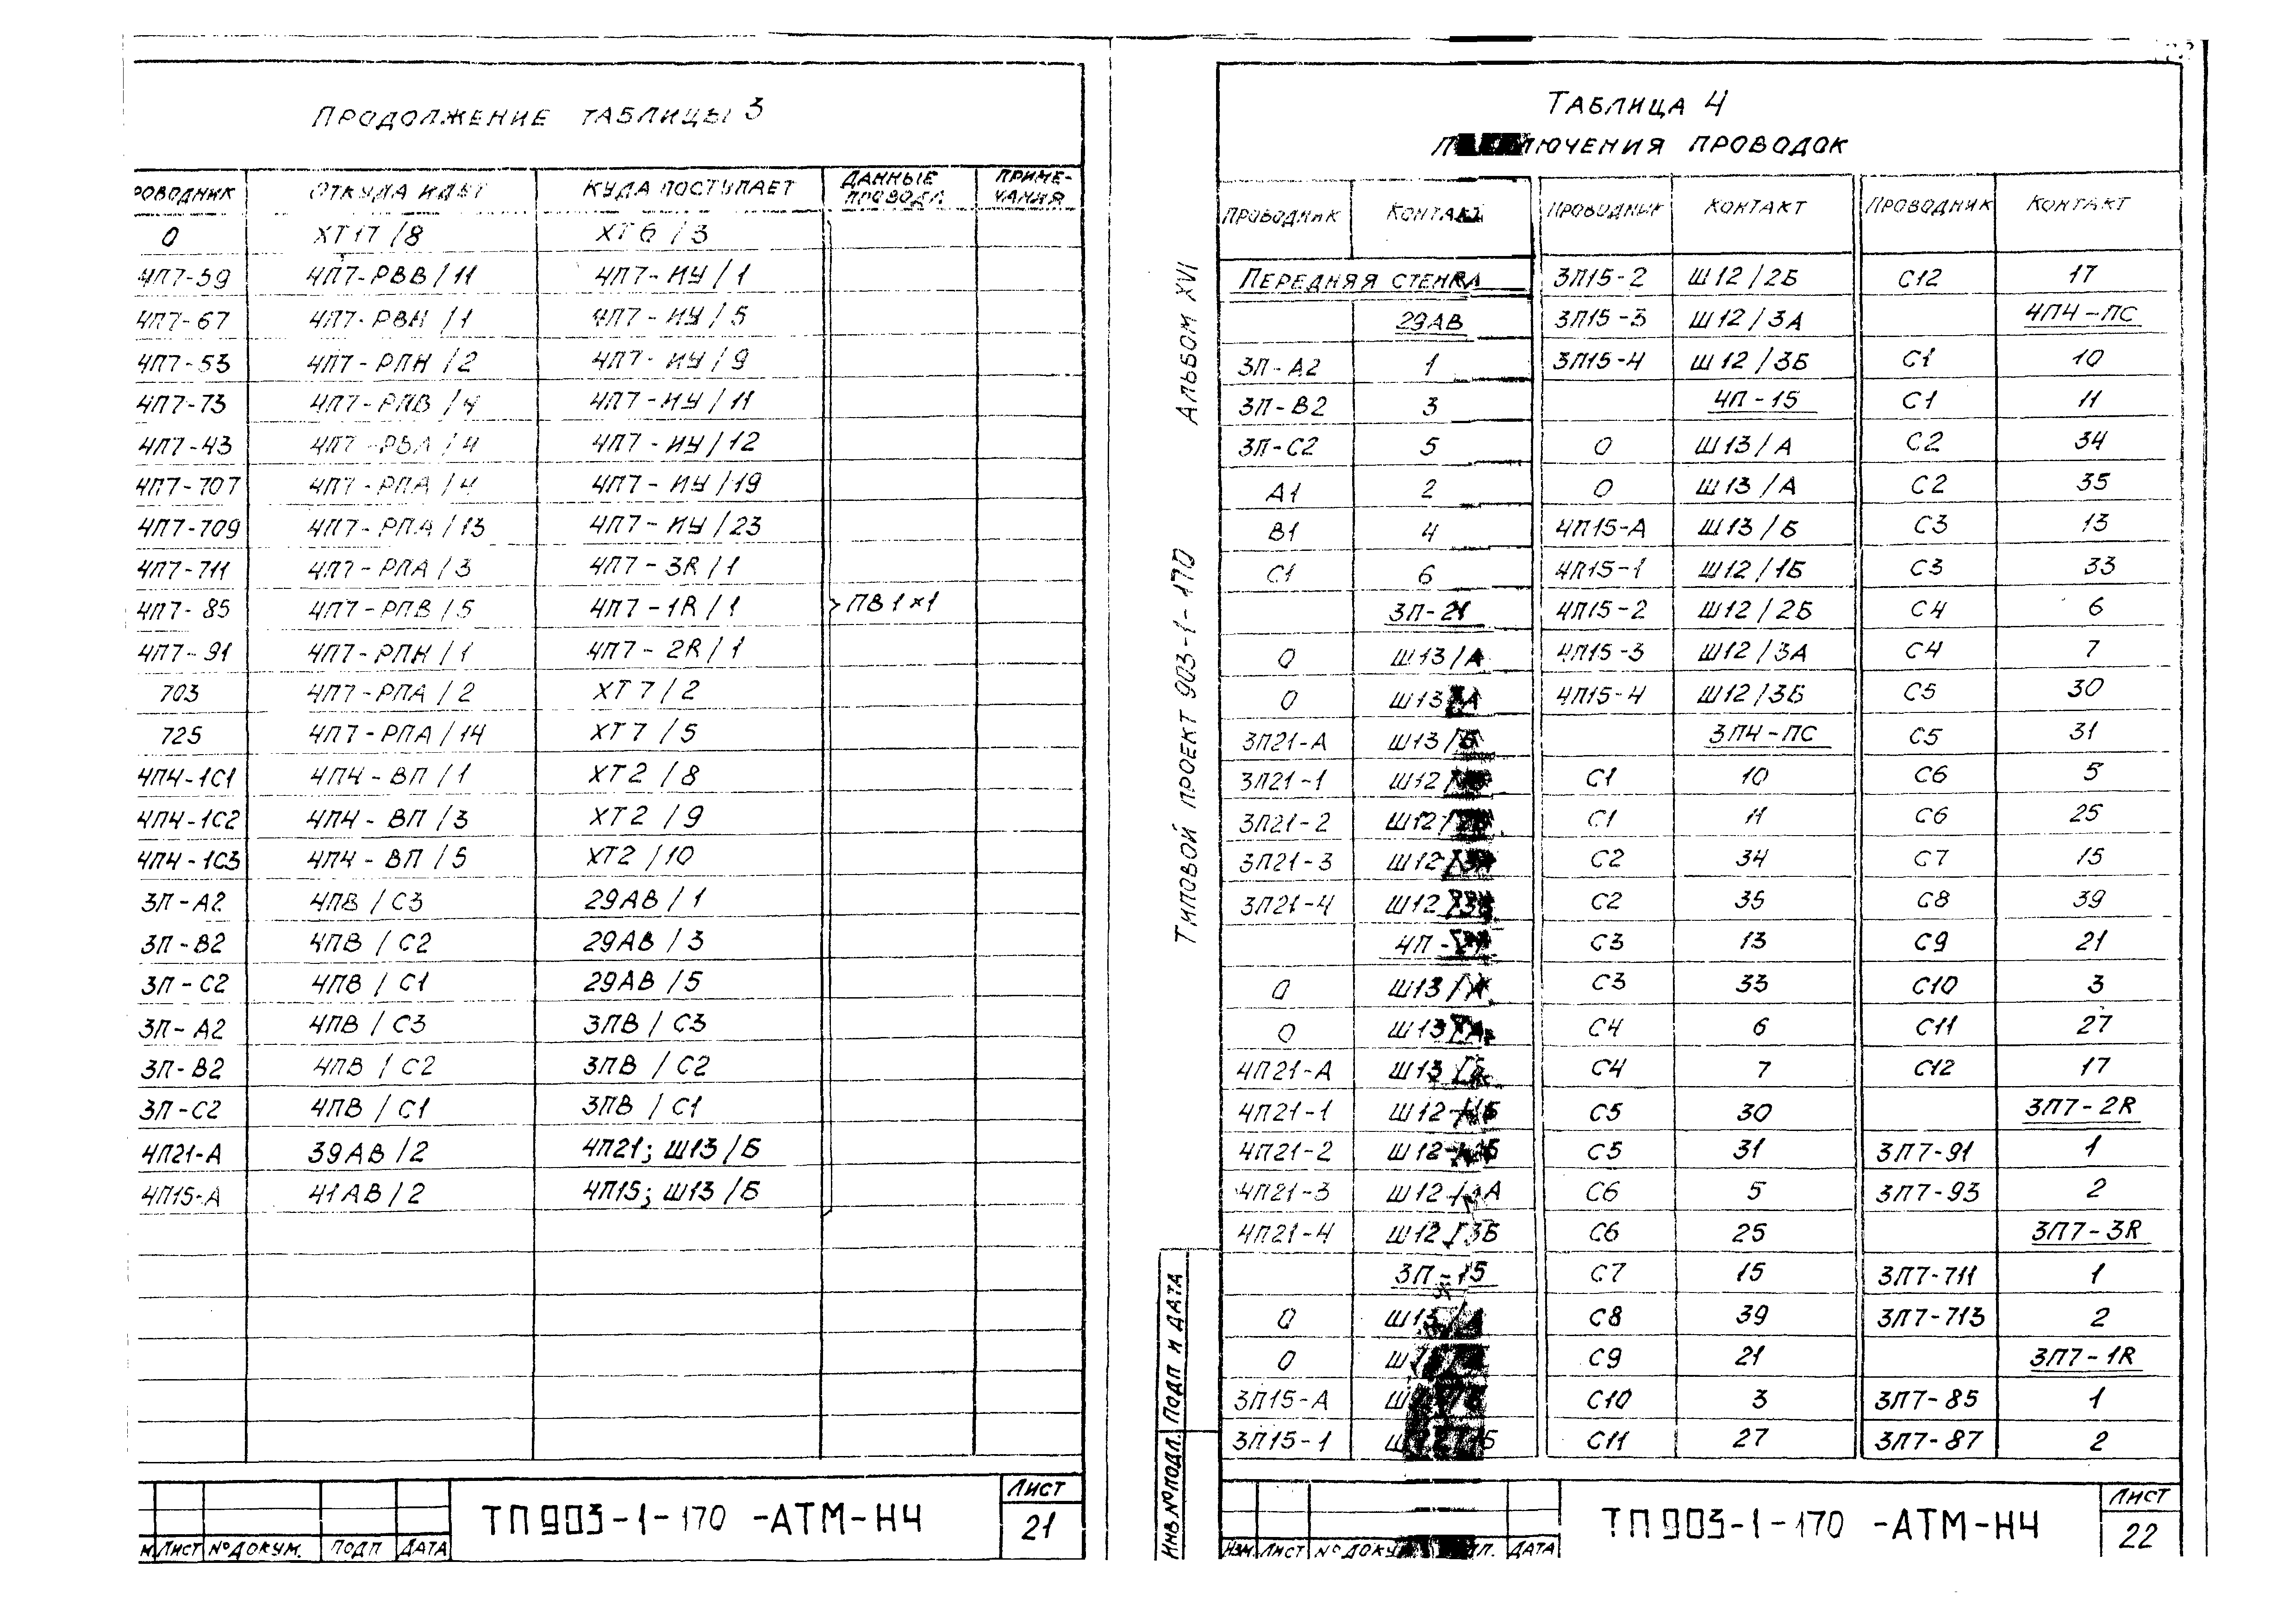 ПРОДОЛЖЕНИЕ ТАБЛИЦЫ 3
РОВОДНИК ОТКУДА ИДЕТ КУДА ПОСТУПАЕТ ДАННЫЕ ПРОВОДА ПРИМЕ-ЧАНИЯ
0 ХТ17/8 ХТ6/3
4П7-59 4П7-РВВ/11 4П7-ИУ/1
4П7-67 4П7-РВН/1 4П7-ИУ/5
4П7-53 4П7-РПН/2 4П7-ИУ/9
4П7-73 4П7-РПВ/4 4П7-ИУ/11
4П7-43 4П7-РБА/4 4П7-ИУ/12
4П7-707 4П7-РПА/4 4П7-ИУ/19
4П7-709 4П7-РПА/13 4П7-ИУ/23
4П7-711 4П7-РПА/3 4П7-3R/1
4П7-85 4П7-РПВ/5 4П7-1R/1 ПВ1×1
4П7-91 4П7-РПН/1 4П7-2R/1
703 4П7-РПА/2 ХТ7/2
725 4П7-РПА/14 ХТ7/5
4П4-1С1 4П4-ВП/1 ХТ2/8
4П4-1С2 4П4-ВП/3 ХТ2/9
4П4-1С3 4П4-ВП/5 ХТ2/10
3П-А2 4ПВ/С3 29АВ/1
3П-В2 4ПВ/С2 29АВ/3
3П-С2 4ПВ/С1 29АВ/5
3П-А2 4ПВ/С3 3ПВ/С3
3П-В2 4ПВ/С2 3ПВ/С2
3П-С2 4ПВ/С1 3ПВ/С1
4П21-А 39АВ/2 4П21; Ш13/Б
4П15-А 41АВ/2 4П15; Ш13/Б
М. ЛИСТ №ДОКУМ. ПОДП ДАТА
ТП903-1-170-АТМ-Н4
ЛИСТ
21
ТИПОВОЙ ПРОЕКТ 903-1-170 АЛЬБОМ XVI
ИНВ№ПОДЛ. ПОДП И ДАТА
ТАБЛИЦА 4
ПРОВОДОК
ПРОВОДНИК КОНТАКТ ПРОВОДНИК КОНТАКТ ПРОВОДНИК КОНТАКТ
ПЕРЕДНЯЯ СТЕНКА 3П15-2 Ш12/2Б С12 17
29АВ 3П15-3 Ш12/3А 4П4-ПС
3П-А2 1 3П15-4 Ш12/3Б С1 10
3П-В2 3 4П-15 С1 11
3П-С2 5 0 Ш13/А С2 34
А1 2 0 Ш13/А С2 35
В1 4 4П15-А Ш13/Б С3 13
С1 6 4П15-1 Ш12/1Б С3 33
3П-21 4П15-2 Ш12/2Б С4 6
0 Ш13/А 4П15-3 Ш12/3А С4 7
0 Ш13/А 4П15-4 Ш12/3Б С5 30
3П21-А Ш13/Б 3П4-ПС С5 31
3П21-1 Ш12/ С1 10 С6 5
3П21-2 Ш12/ С1 11 С6 25
3П21-3 Ш12/ С2 34 С7 15
3П21-4 Ш12/ С2 35 С8 39
4П- С3 13 С9 21
0 Ш13/ С3 33 С10 3
0 Ш13 С4 6 С11 27
4П21-А Ш13 С4 7 С12 17
4П21-1 Ш12 С5 30 3П7-2R
4П21-2 Ш12 С5 31 3П7-91 1
4П21-3 Ш12 С6 5 3П7-93 2
4П21-4 Ш12/3Б С6 25 3П7-3R
3П-15 С7 15 3П7-711 1
0 Ш13/ С8 39 3П7-713 2
0 С9 21 3П7-1R
3П15-А С10 3 3П7-85 1
3П15-1 С11 27 3П7-87 2
ИЗМ ЛИСТ ДАТА
ТП903-1-170-АТМ-Н4
ЛИСТ
22